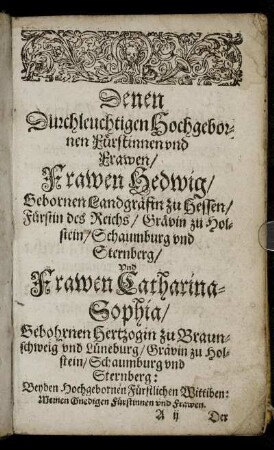 Denen
Durchleuchtigen Hochgebor-
nen Fürstinnen vnd
Frawen/
Frawen Hedwig/
Gebornen Landgräfin zu Hessen/
Fürstin des Reichs/ Grävin zu Hol-
stein/ Schaumburg vnd
Sternberg/
Vnd
Frawen Catharina-
Sophia/
Gebohrnen Hertzogin zu Braun-
schweig vnd Lüneburg/ Grävin zu Hol-
stein/ Schaumburg vnd
Sternberg:
Beyden Hochgebornen Fürstlichen Wittiben:
Meinen Gnedigen Fürstinnen vnd Frawen.
A ij Der